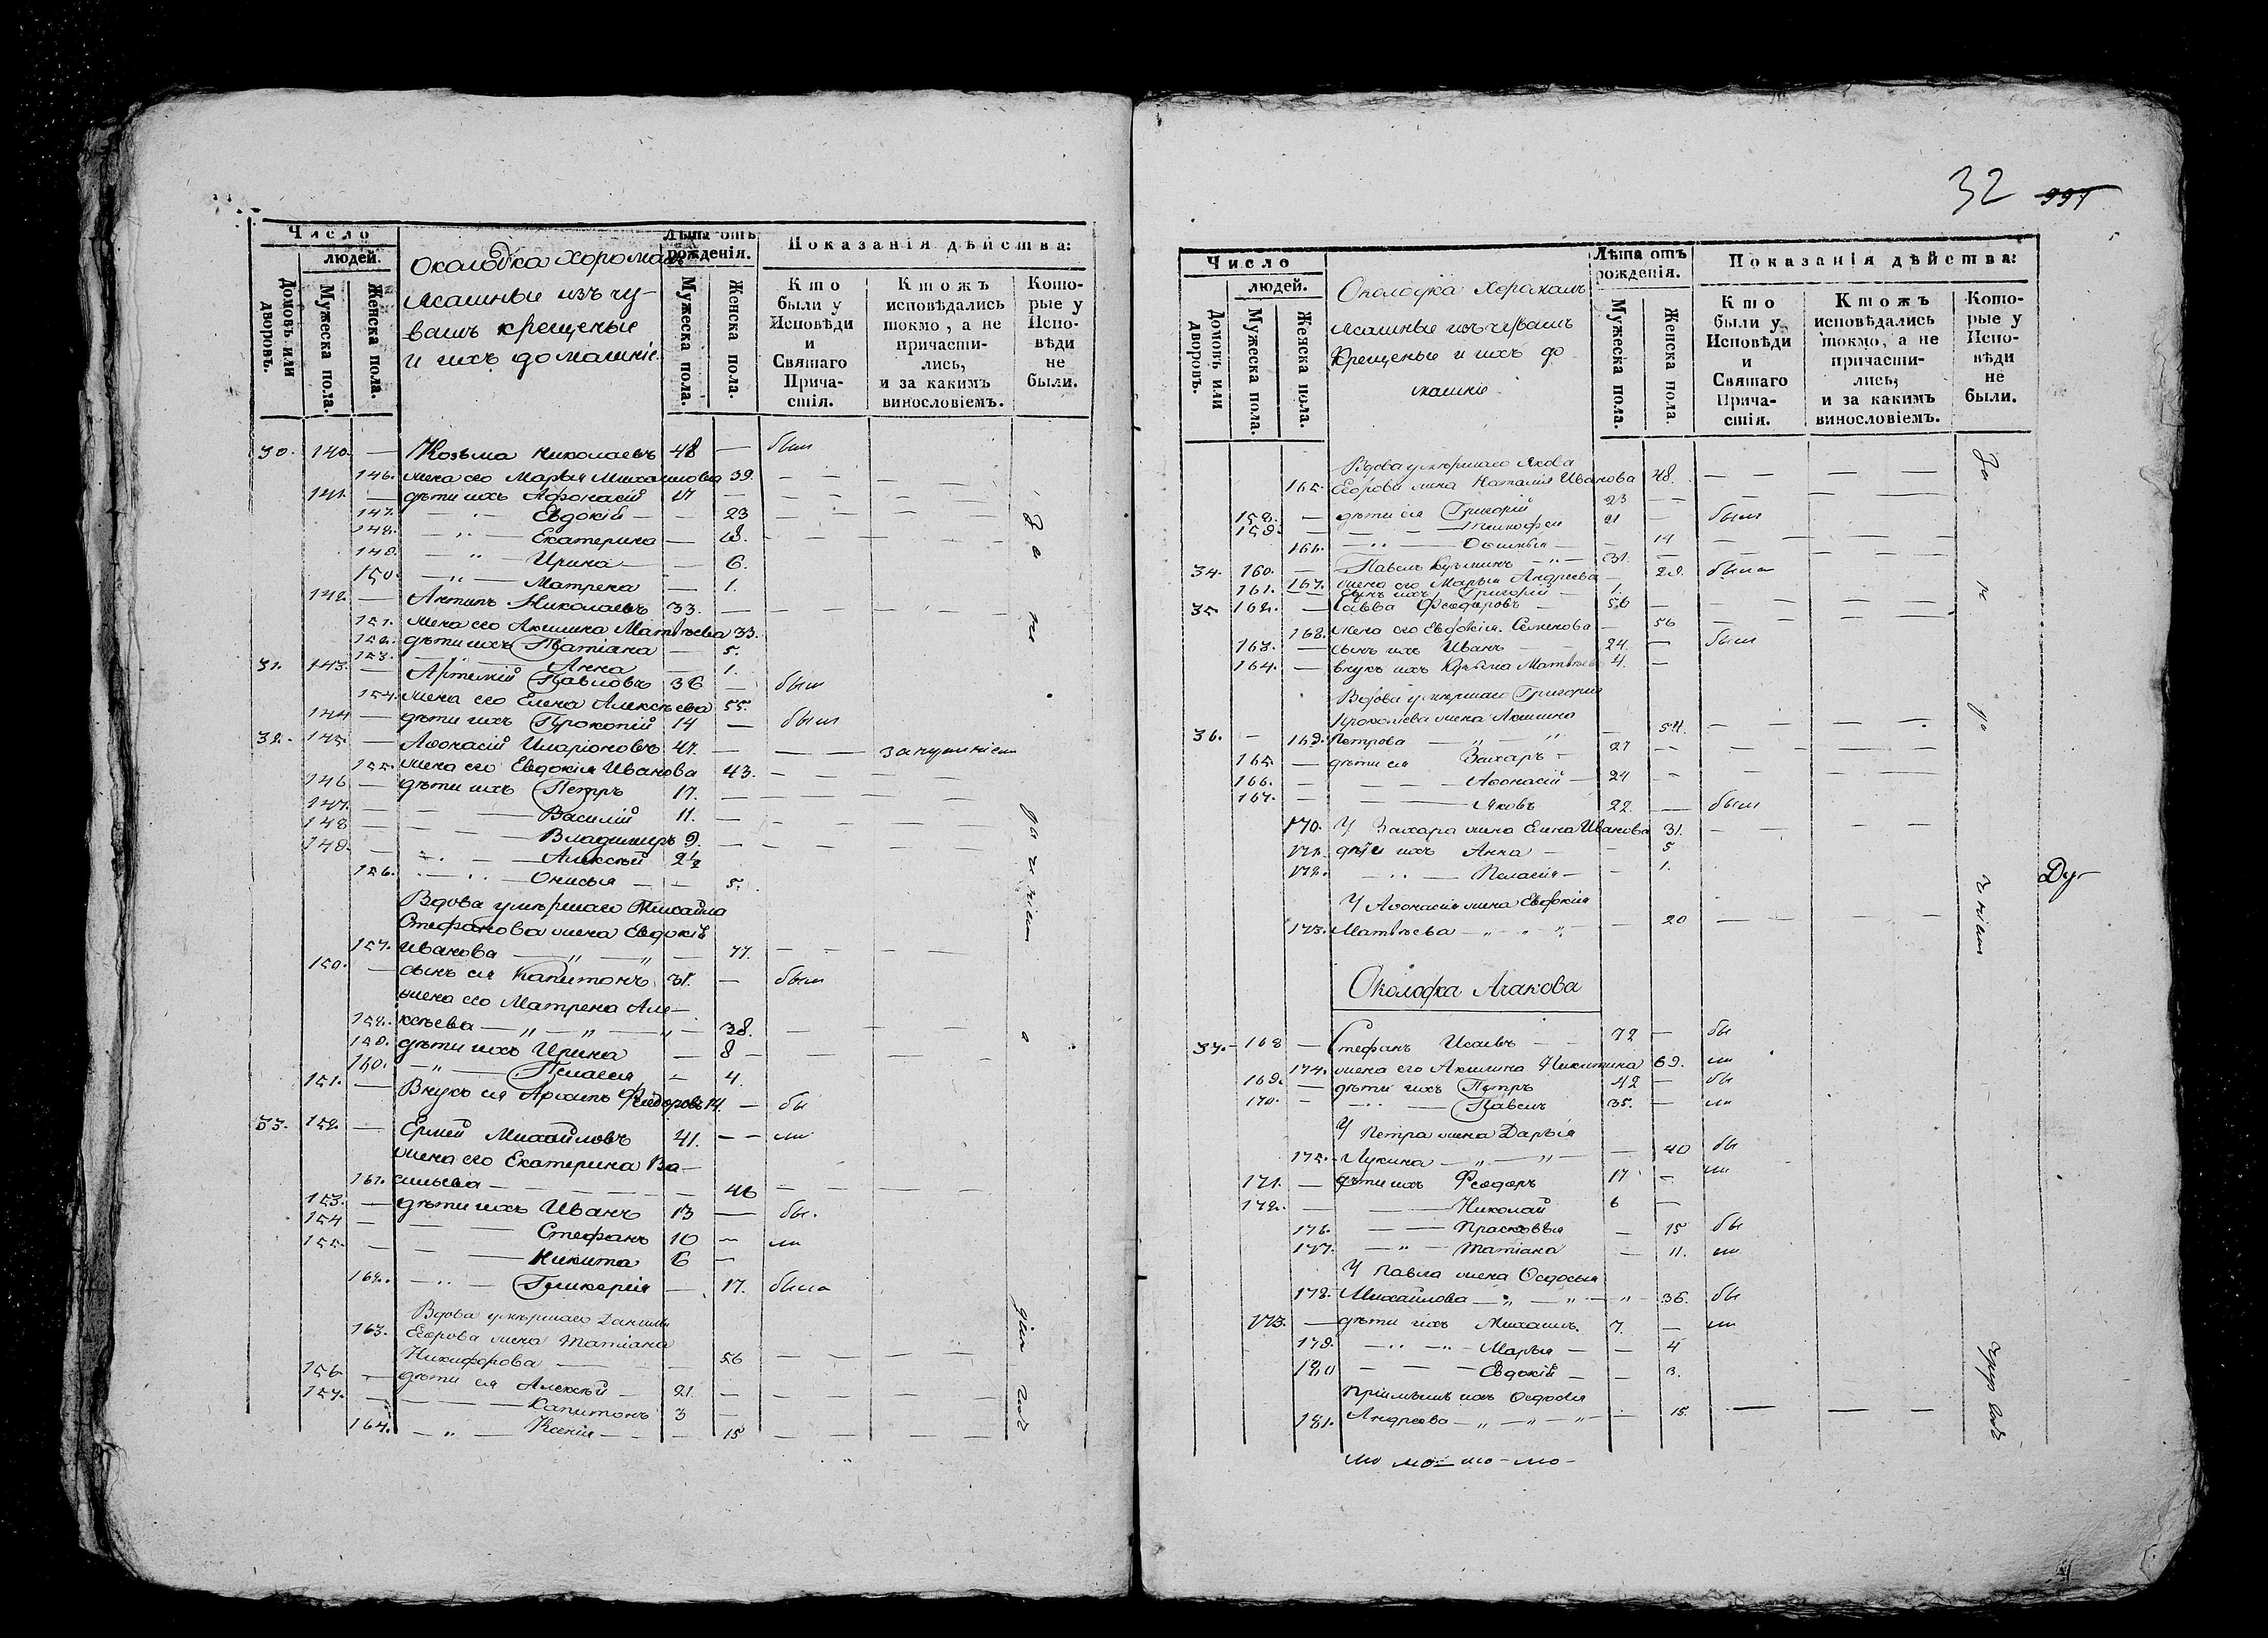 Число
людей.
Домовъ или дворовъ.
Мужеска пола.
Женска пола.
Околодка Хорамалъ
ясашные изъ чу-
вашъ крещеные
и ихъ домашніе
Лѣта отъ
рожденія.
Мужеска пола.
Женска пола.
Показанія дѣйства:
Кто были у Исповѣди и Святаго Прича-стія.
Ктожъ исповѣдались токмо, а не причасти-лись, и за какимъ винословіемъ.
Кото-рые у Испо-вѣди не были.
30. 140. — Козьма Николаевъ 48 — былъ
146. жена его Марья Михаилова 39. — — —
141. — дѣти ихъ Афонасій 17 — — — —
147. — Евдокія — — 23 — — —
148. — „ — Екатерина — 18. — — —
149. — „ — Ирина — — 6.
150. — „ — Матрена — 1.
142. — Антипъ Николаевъ 33. — — — —
151. жена его Акилина Матвѣева 33.
152. дѣти ихъ Татіана — 5.
153. — Анна — 1.
31. 143. — Артемій Павловъ 36 — былъ
154. жена его Елена Алексѣева 55.
144 — дѣти ихъ Прокопій 14 — былъ
32. 145. — Афонасій Иларіоновъ 47. — — — за нуждѣніемъ
155. жена его Евдокія Иванова 43. — — —
146 — дѣти ихъ Петръ 17. —
147. — — Василій 11. —
148 — — — Владимиръ 9. —
149. — — — Алексѣй 2½
156. — „ — Онисья — — 5.
Вдова умершаго Михайла
Стефанова жена Евдокія
157. Иванова — „ — „ — 77. — — —
150. — сынъ ея Капитонъ 31. — былъ
жена его Матрена Але-
158. ксѣева — „ — „ — „ — 38. — — —
159. дѣти ихъ Ирина — 8 —
160. — „ — Пелагея — 4.
151. — Внукъ ея Архипъ Феодоровъ 14. — бы
33. 152. — Ермей Михайловъ 41. — — ли
жена его Екатерина Ва-
161. сильева — — — — 46 — — —
153. — дѣти ихъ Иванъ 13 — бы.
154 — — Стефанъ 10 — ли
155. — — Никита 6 —
162. — „ — Гликерія — 17. была
Вдова умершаго Данилы
163. Егорова жена Татіана
Никифорова — — 56 — — —
156 — дѣти ея Алексѣй — 21. — — —
157. — — Капитонъ 3 —
164. — „ — Ксенія — — — 15 — — —
32 991
Число
людей.
Домовъ или дворовъ.
Мужеска пола.
Женска пола.
Околодка Хорамалъ
ясашные изъ чувашъ
Крещеные и ихъ до
машніе
Лѣта отъ
рожденія.
Мужеска пола.
Женска пола.
Показанія дѣйства:
Кто были у Исповѣди и Святаго Прича-стія.
Ктожъ исповѣдались токмо, а не причасти-лись, и за какимъ винословіемъ.
Кото-рые у Испо-вѣди не были.
Вдова умершаго Якова
165. Егорова жена Наталія Иванова 48. — — —
158. — дѣти ея Григорій 23 — — —
159. — — Тимофей 21 — былъ
166. — „ — Осинья — — 14 — — —
34. 160. — Павелъ Кузминъ — „ — 31. — — —
167. жена его Марья Андреева — 29. была
161. — сынъ ихъ Григорій — 1.
35 162. — Савва Феодоровъ — 56 — — —
168. жена его Евдокія Семенова — 56 — — —
163. — сынъ ихъ Иванъ — 24. — былъ
164. — внукъ ихъ Кузьма Матвѣевъ 4. —
Вдова умершаго Григорія
Прокопіева жена Акилина
36. — 169. Петрова — „ — „ — — 54. — — —
165. — дѣти ея Захаръ — 27 — — —
166. — — — Афонасій — 24 — — —
167. — — Яковъ 22. — былъ
170. У Захара жена Елена Иванова 31. — — —
171. дѣти ихъ Анна — — 5
172. — „ — Пелагія — — 1.
У Афонасія жена Евдокія
173. Матвѣева — „ „ „ — 20 — — —
Ду-
Околодка Ачакова
37. — 168 — Стефанъ Исаевъ — — 72 — бы
174. жена его Акилина Никитина 69. ли
169. — дѣти ихъ Петръ 42 — бы
170. — — „ — Павелъ 35. — ли
У Петра жена Дарья
175. Лукина — „ — „ — — 40 бы
171. — дѣти ихъ Феодоръ 17 — ли
172. — — Николай 6 —
176. — — Прасковья — 15 бы
177. — „ — Татіана — 11. ли
У Павла жена Федосья
178. Михайлова — „ — „ — „ 36. бы
173. — дѣти ихъ Михаилъ. 7. — ли
179. — „ — Марья — — 4
180 — — — Евдокія — — 3.
Пріимышъ ихъ Федосья
181. Андреева — „ — „ — „ — 15. — — —